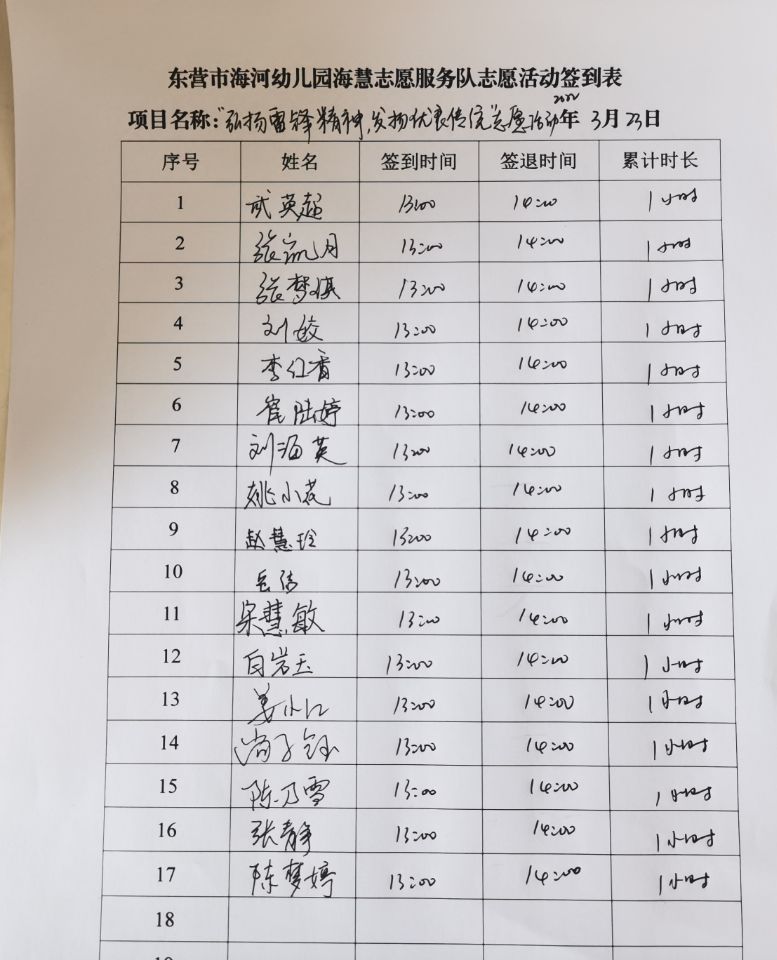 东营市海河幼儿园海慧志愿服务队志愿活动签到表
项目名称:"弘扬雷锋精神,发扬优良传统"志愿活动 2022年 3月23日
序号 姓名 签到时间 签退时间 累计时长
1 武英超 13:00 14:00 1小时
2 张 月 13:00 14:00 1小时
3 张梦琪 13:00 14:00 1小时
4 刘皎 13:00 14:00 1小时
5 李红香 13:00 14:00 1小时
6 崔陆婷 13:00 14:00 1小时
7 刘海英 13:00 14:00 1小时
8 姚小花 13:00 14:00 1小时
9 赵慧玲 13:00 14:00 1小时
10 岳倩 13:00 14:00 1小时
11 宋慧敏 13:00 14:00 1小时
12 白岩玉 13:00 14:00 1小时
13 姜小江 13:00 14:00 1小时
14 尚子钰 13:00 14:00 1小时
15 陈乃雪 13:00 14:00 1小时
16 张静 13:00 14:00 1小时
17 陈梦婷 13:00 14:00 1小时
18